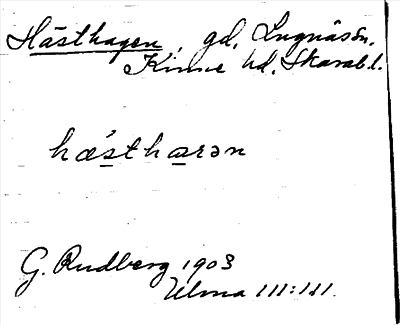 Hästhagen, gd, Lugnås sn.
Kinne hd, Skarab.l.
hǽsthaɡən
G. Rudberg 1903
Ulma 111:111.